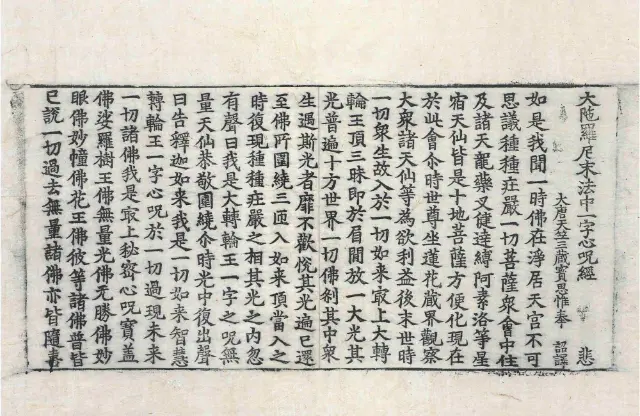 大陁羅尼末法中一字心呪經　悲
大唐天竺三藏寶思惟奉　詔譯
如是我聞一時佛在淨居天宮不可
思議種種莊嚴一切菩薩衆會中住
及諸天龍藥叉健達縛阿素洛等星
宿天仙皆是十地菩薩方便化現在
於此會尒時世尊坐蓮花藏界觀察
大衆諸天仙等爲欲利益後末世時
一切衆生故入於一切如來㝡上大轉
輪王頂三昧即於眉間放一大光其
光普遍十方世界一切佛刹其中衆
生遇斯光者靡不歡悅其光遍已還
至佛所圍繞三匝入如來頂當入之
時復現種種莊嚴之相其光之內忽
有聲曰我是大轉輪王一字之呪無
量天仙恭敬圍繞尒時光中復出聲
曰告釋迦如來我是一切如來智慧
轉輪王一字心呪於一切過現未來
一切諸佛我是㝡上秘密心呪寶蓋
佛娑羅樹王佛無量光佛无勝佛妙
眼佛妙幢佛花王佛彼等諸佛普皆
已說一切過去無量諸佛亦皆隨喜